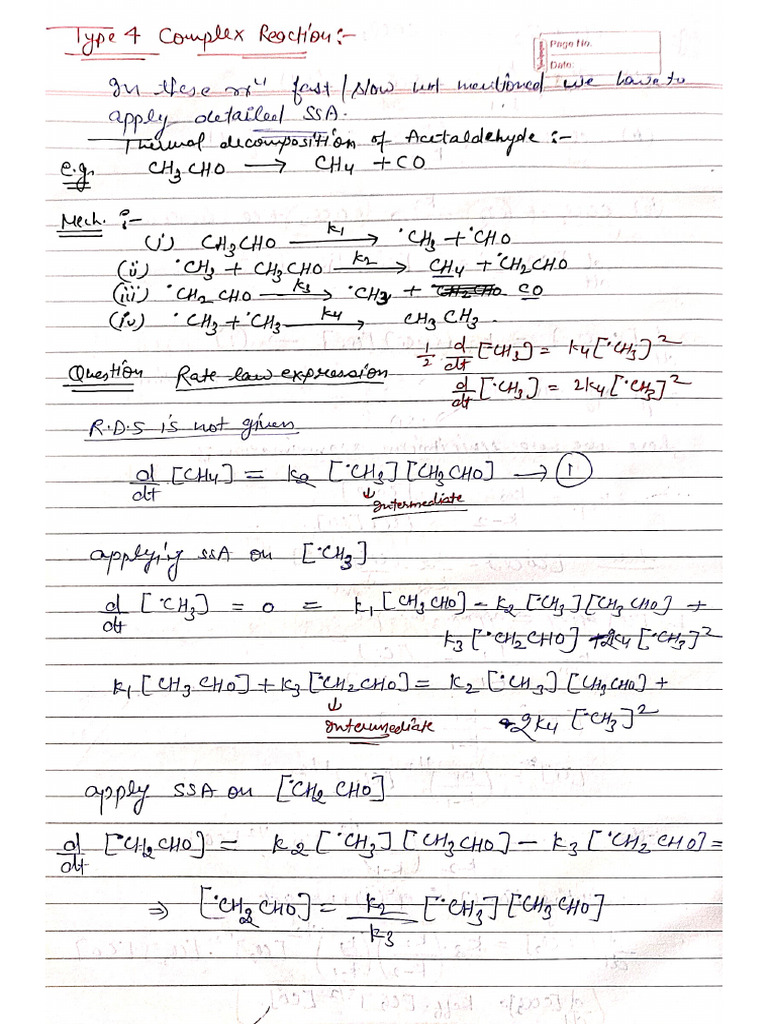 Type 4 Complex Reaction:-
Page No.
Date:
In these rxⁿ fast/slow not mentioned we have to
apply detailed SSA.
Thermal decomposition of Acetaldehyde :-
e.g. CH3CHO ⟶ CH4 + CO
Mech. :-
(i) CH3CHO —k1→ •CH3 + •CHO
(ii) •CH3 + CH3CHO —k2→ CH4 + •CH2CHO
(iii) •CH2CHO —k3→ •CH3 + CO
(iv) •CH3 + •CH3 —k4→ CH3CH3.
1/2 d/dt [CH3] = k4[•CH3]²
Question Rate law expression
d/dt [•CH3] = 2k4[•CH3]²
R.D.S is not given
d/dt [CH4] = k2 [•CH3][CH3CHO] → ①
↓
Intermediate
applying SSA on [•CH3]
d/dt [•CH3] = 0 = k1[CH3CHO] - k2[•CH3][CH3CHO] +
k3[•CH2CHO] - 2k4[•CH3]²
k1[CH3CHO] + k3[•CH2CHO] = k2[•CH3][CH3CHO] +
↓
Intermediate
2k4[•CH3]²
apply SSA on [•CH2CHO]
d/dt [•CH2CHO] = k2[•CH3][CH3CHO] - k3[•CH2CHO] =
⇒ [•CH2CHO] = k2/k3 [•CH3][CH3CHO]